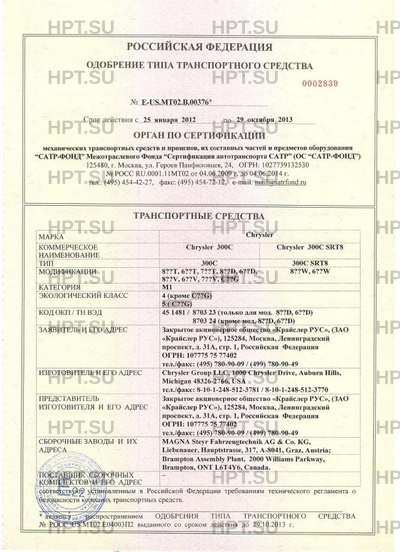 HPT.SU HPT.SU HPT.SU
РОССИЙСКАЯ ФЕДЕРАЦИЯ
ОДОБРЕНИЕ ТИПА ТРАНСПОРТНОГО СРЕДСТВА
0002839
№ E-US.MT02.B.00376*
Срок действия с 25 января 2012 по 29 октября 2013
ОРГАН ПО СЕРТИФИКАЦИИ
механических транспортных средств и прицепов, их составных частей и предметов оборудования
"САТР-ФОНД" Межотраслевого Фонда "Сертификация автотранспорта САТР" (ОС "САТР-ФОНД")
125480, г. Москва, ул. Героев Панфиловцев, 24, ОГРН: 1027739132530
№ РОСС RU.0001.11МТ02 от 04.06.2009 г. до 04.06.2014 г.
тел.: (495) 454-42-27, факс: (495) 454-72-12, e-mail: mail@satrfond.ru
ТРАНСПОРТНЫЕ СРЕДСТВА
МАРКА Chrysler
КОММЕРЧЕСКОЕ НАИМЕНОВАНИЕ Chrysler 300C Chrysler 300C SRT8
ТИП 300C 300C SRT8
МОДИФИКАЦИИ 8??T, 6??T, 7??T, 8??D, 6??D, 8??W, 6??W
8??V, 6??V, 7??V, C??G
КАТЕГОРИЯ M1
ЭКОЛОГИЧЕСКИЙ КЛАСС 4 (кроме C??G)
5 ( C??G)
КОД ОКП / ТН ВЭД 45 1481 / 8703 23 (только для мод. 8??D, 6??D)
8703 24 (кроме мод. 8??D, 6??D)
ЗАЯВИТЕЛЬ И ЕГО АДРЕС Закрытое акционерное общество «Крайслер РУС», (ЗАО
«Крайслер РУС»), 125284, Москва, Ленинградский
проспект, д. 31А, стр. 1, Российская Федерация
ОГРН: 107775 75 77402
тел./факс: (495) 780-90-09 / (499) 780-90-49
ИЗГОТОВИТЕЛЬ И ЕГО АДРЕС Chrysler Group LLC, 1000 Chrysler Drive, Auburn Hills,
Michigan 48326-2766, USA
тел./факс: 8-10-1-248-512-3781 / 8-10-1-248-512-3770
ПРЕДСТАВИТЕЛЬ ИЗГОТОВИТЕЛЯ И ЕГО АДРЕС Закрытое акционерное общество «Крайслер РУС», (ЗАО
«Крайслер РУС»), 125284, Москва, Ленинградский
проспект, д. 31А, стр. 1, Российская Федерация
ОГРН: 107775 75 77402
тел./факс: (495) 780-90-09 / (499) 780-90-49
СБОРОЧНЫЕ ЗАВОДЫ И ИХ АДРЕСА MAGNA Steyr Fahrzeugtechnik AG & Co. KG,
Liebenauer, Hauptstrasse, 317, A-8041, Graz, Austria;
Brampton Assembly Plant, 2000 Williams Parkway,
Brampton, ONT L6T4Y6, Canada.
ПОСТАВЩИК СБОРОЧНЫХ КОМПЛЕКТОВ И ЕГО АДРЕС –
соответствуют установленным в Российской Федерации требованиям технического регламента о
безопасности колесных транспортных средств.
распространением ОДОБРЕНИЯ ТИПА ТРАНСПОРТНОГО СРЕДСТВА
№ РОСС US.MT02.E04003П2 выданного со сроком действия до 29.10.2013 г.